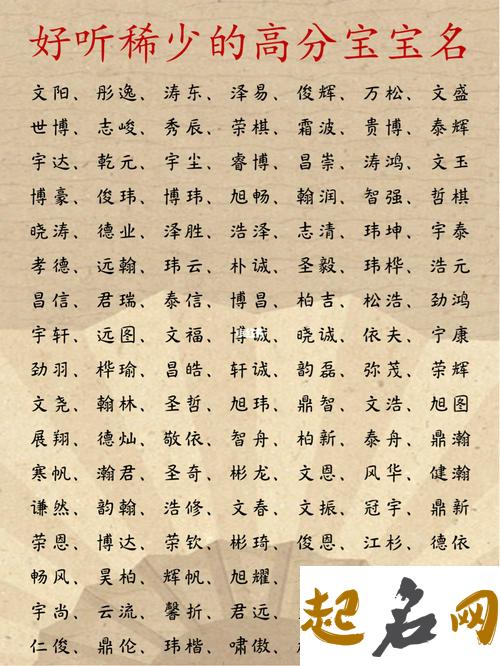 好听稀少的高分宝宝名
文阳、彤逸、涛东、泽易、俊辉、万松、文盛
世博、志峻、秀辰、荣棋、霜波、贵博、泰辉
宇达、乾元、宇尘、睿博、昌崇、涛鸿、文玉
博豪、俊玮、博玮、旭畅、翰润、智强、哲棋
晓涛、德业、泽胜、浩泽、志清、玮坤、宇泰
孝德、远翰、玮云、朴诚、圣毅、玮桦、浩元
昌信、君瑞、泰信、博昌、柏吉、松浩、劲鸿
宇轩、远图、文福、博诚、晓诚、依夫、宁康
劲羽、桦瑜、昌皓、轩诚、韵磊、弥茂、荣辉
文尧、翰林、圣哲、旭玮、鼎智、文浩、旭图
展翔、德灿、敬依、智舟、柏新、泰舟、鼎瀚
寒帆、瀚君、圣奇、彬龙、文恩、风华、健瀚
谦然、韵翰、浩修、文春、文振、冠宇、鼎新
荣恩、博达、荣钦、彬琦、俊恩、江杉、德依
畅风、昊柏、辉帆、旭耀、
宇尚、云流、馨折、君远、
仁俊、鼎伦、玮楷、啸傲、
起名网